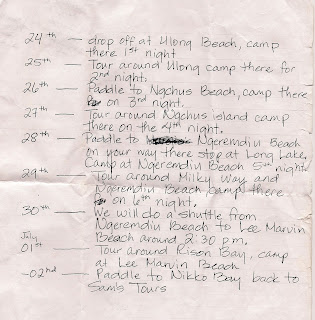 24th — drop off at Ulong Beach, camp
there 1st night
25th — Tour around Ulong camp there for
2nd night.
26th — Paddle to Ngchus Beach, camp there
on 3rd night.
27th — Tour around Ngchus island camp
there on the 4th night.
28th — Paddle to Ngeremdiu Beach
on your way there stop at Long Lake,
Camp at Ngeremdiu Beach 5th night
29th — Tour around Milky Way and
Ngeremdiu Beach camp there
on 6th night.
30th — We will do a shuttle from
Ngeremdiu Beach to Lee Marvin
Beach around 2:30 p.m.
July
01st — Tour around Rison Bay, camp
at Lee Marvin Beach
-02nd — Paddle to Nikko Bay back to
Sam's Tours